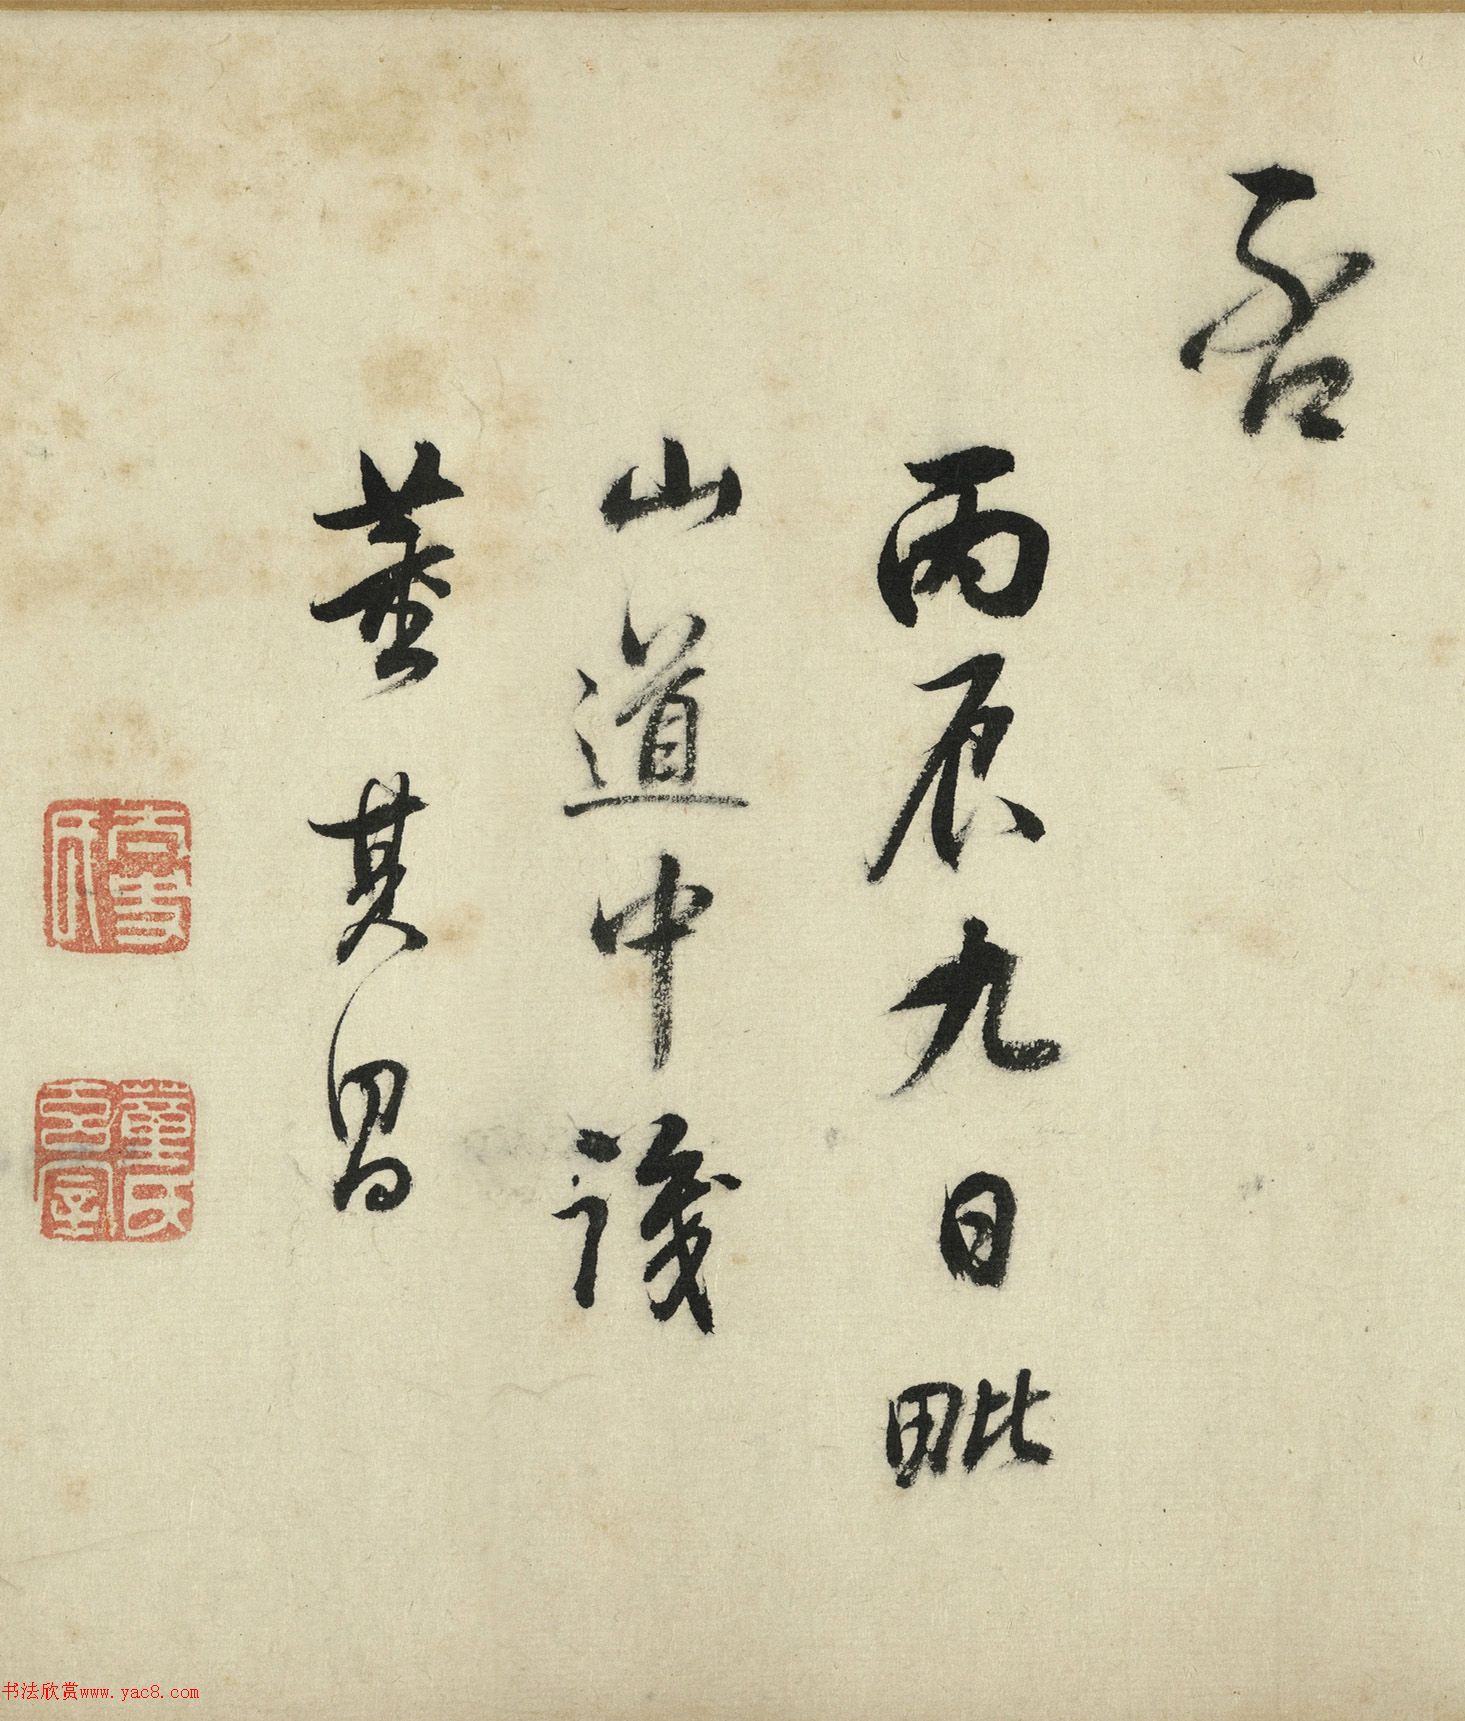 否
丙辰九日毗
山道中識
董其昌
董氏
书法欣赏www.yac8.com